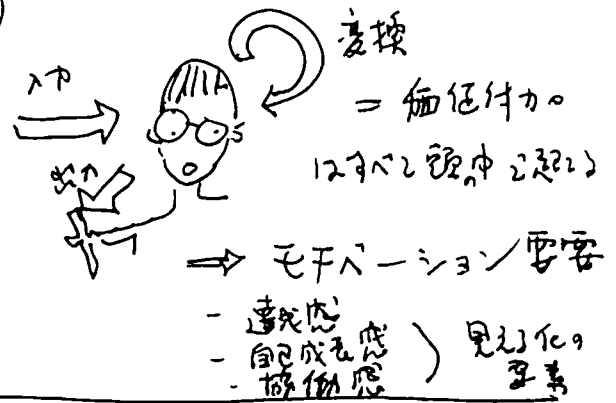 変換
入力
= 価値付加。
はすべて頭の中で起こる
出力
⇒ モチベーション重要
- 達成感
- 自己成長感
- 協働感
見える化の
要素